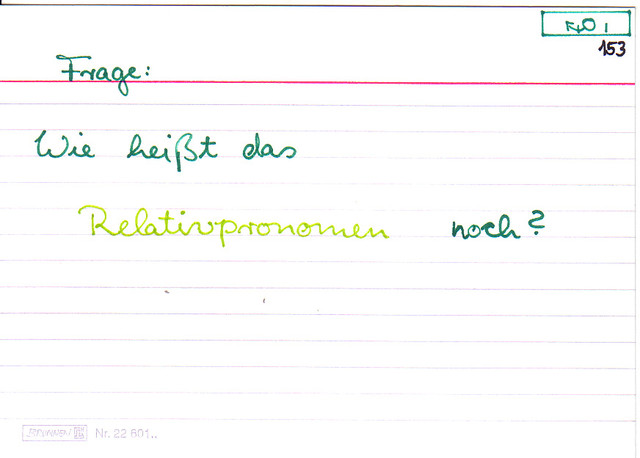 153
Frage:
Wie heißt das
Relativpronomen noch?
BRUNNEN Nr. 22 601..